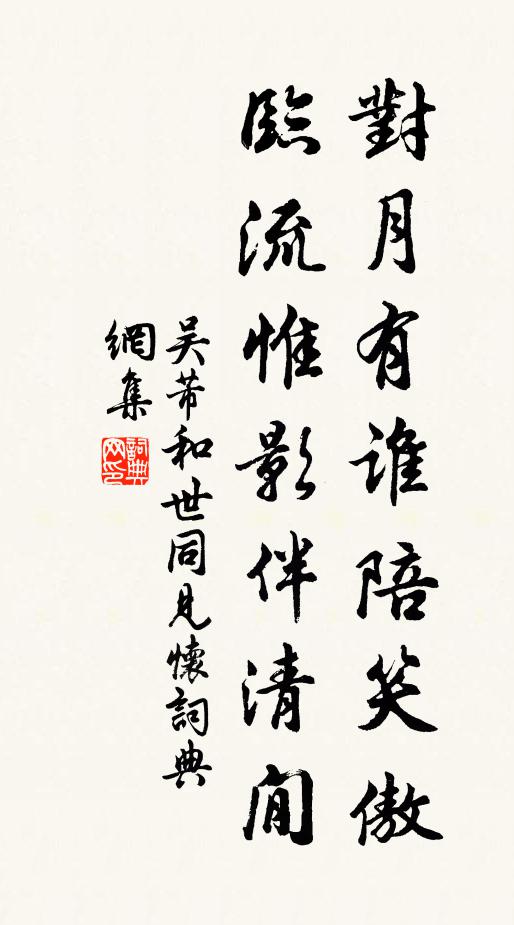 對月有誰陪笑傲
臨流惟影伴清閒
吴芾和世同見懷詞典
網集
詞典網印